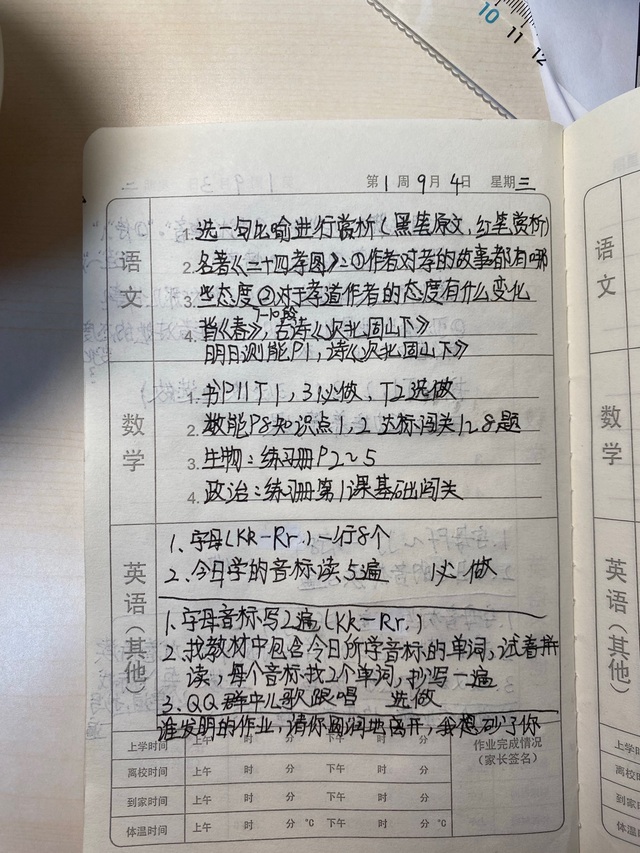 10 11 12
第1周 9月4日 星期三
语文
1. 选一句比喻进行赏析(黑笔原文,红笔赏析)
2. 名著《二十四孝图》:①作者对孝的故事都有哪
3. 些态度②对于孝道作者的态度有什么变化
7-10段
4. 背《春》,古诗《次北固山下》
明日测能P1,诗《次北固山下》
数学
1. 书P11T1,3必做,T2选做
2. 数能P8知识点1,2 达标闯关1.2.8题
3. 生物:练习册P2~5
4. 政治:练习册第1课基础闯关
英语(其他)
1、字母(Kk-Rr.)一行8个
2.今日学的音标读5遍 必做
1.字母音标写2遍(Kk-Rr.)
2.找教材中包含今日所学音标的单词,试着拼
读,每个音标找2个单词,抄写一遍
3.QQ群中儿歌跟唱 选做
谁发明的作业,请你圆润地离开,我想砍了你
上学时间 上午 时 分 下午 时 分
离校时间 上午 时 分 下午 时 分
到家时间 上午 时 分 下午 时 分
体温时间 上午 时 分 °C 下午 时 分 °C
作业完成情况
(家长签名)
语文
数学
英语(其他)
上学时间
离校时间
到家时间
体温时间